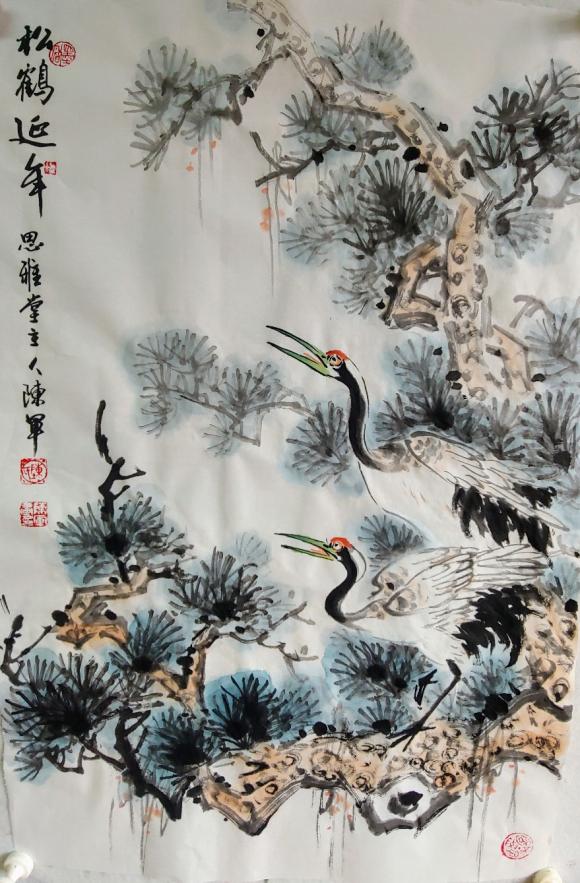 松鶴延年
思雅堂主人陳軍